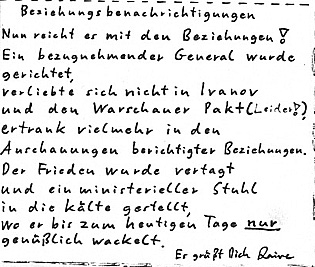 Beziehungsbenachrichtigungen
Nun reicht es mit den Beziehungen!
Ein bezugnehmender General wurde
gerichtet,
verliebte sich nicht in Ivanov
und den Warschauer Pakt (Leider!),
ertrank vielmehr in den
Anschauungen berichtigter Beziehungen.
Der Frieden wurde vertagt
und ein ministerieller Stuhl
in die Kälte gestellt,
wo er bis zum heutigen Tage nur
genüßlich wackelt.
Er grüßt Dich